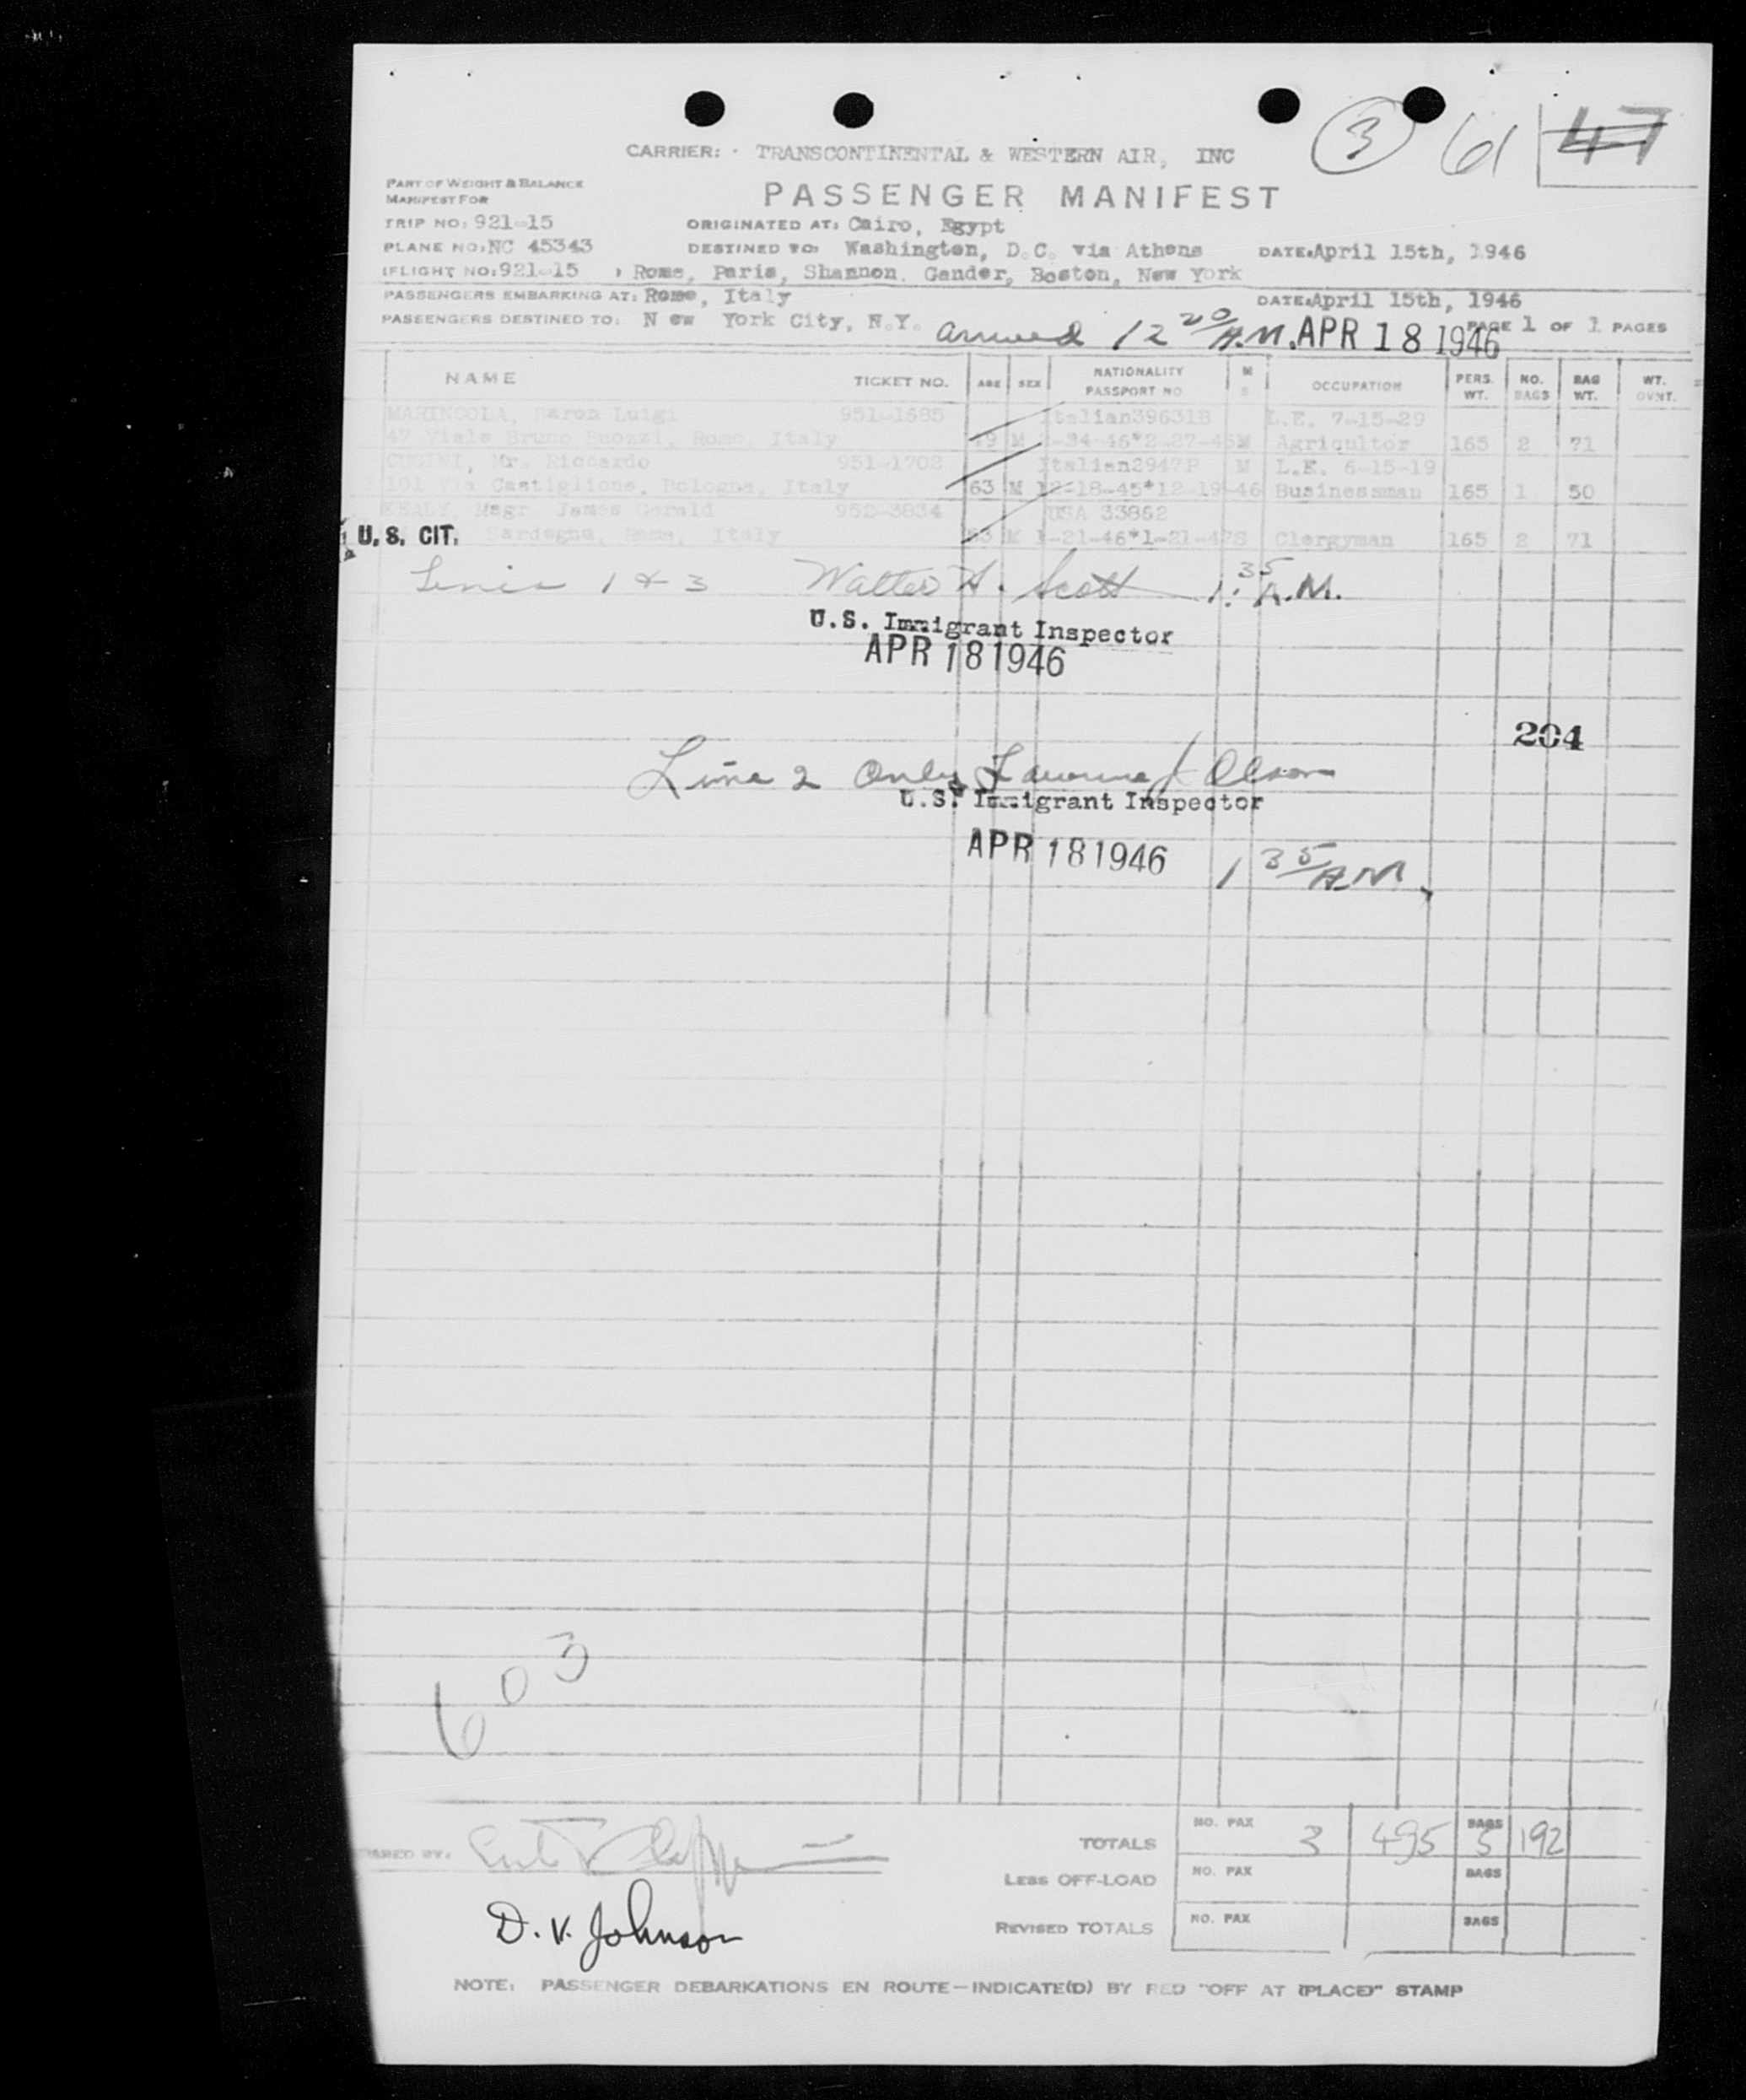 3 61 47
CARRIER: TRANSCONTINENTAL & WESTERN AIR, INC
PART OF WEIGHT & BALANCE
MANIFEST FOR
PASSENGER MANIFEST
TRIP NO: 921-15 ORIGINATED AT: Cairo, Egypt
PLANE NO: NC 45343 DESTINED TO: Washington, D.C. via Athens DATE: April 15th, 1946
FLIGHT NO: 921-15 , Rome, Paris, Shannon. Gander, Boston, New York
PASSENGERS EMBARKING AT: Rome, Italy DATE: April 15th, 1946
PASSENGERS DESTINED TO: N ew York City, N.Y. arrived 12 20/A.M. APR 18 1946 PAGE 1 OF 1 PAGES
NAME TICKET NO. AGE SEX NATIONALITY PASSPORT NO M S OCCUPATION PERS. WT. NO. BAGS BAG WT. WT. OVWT.
MARINCOLA, Baron Luigi 951-1685 Italian 396318 L.E. 7-15-29
47 Viale Bruno Buozzi, Rome, Italy 49 M M Agricultor 165 2 71
Mr. Riccardo 951-1702 Italian 2947P M L.E. 6-15-19
101 Via Castiglione, Bologna, Italy 63 M 12-18-45*12-19-46 Businessman 165 1 50
Msgr. James Gerald 952-3834 USA 33862
U.S. CIT. Sardegna, Rome, Italy M 1-21-46*1-21-47 S Clergyman 165 2 71
1 & 3 Walter H. Scott 1:35 A.M.
U.S. Immigrant Inspector
APR 18 1946
204
Line 2 only Olson
U.S. Immigrant Inspector
APR 18 1946 1 35/A.M.
603
TOTALS NO. PAX 3 495 BAGS 5 192
LESS OFF-LOAD NO. PAX BAGS
D. V. Johnson
REVISED TOTALS NO. PAX BAGS
NOTE: PASSENGER DEBARKATIONS EN ROUTE—INDICATE(D) BY RED "OFF AT (PLACE)" STAMP